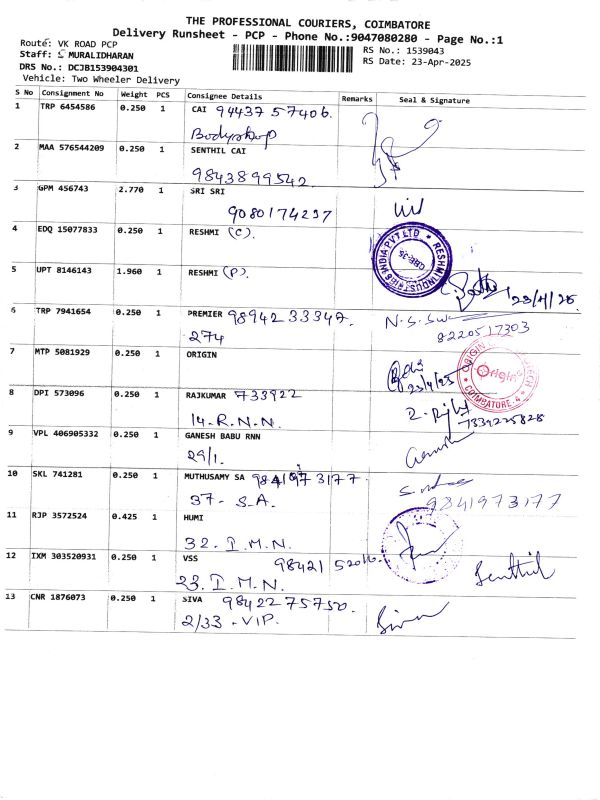 THE PROFESSIONAL COURIERS, COIMBATORE
Delivery Runsheet - PCP - Phone No.:9047080280 - Page No.:1
Route: VK ROAD PCP
Staff: S MURALIDHARAN
DRS No.: DCJB153904301
Vehicle: Two Wheeler Delivery
RS No.: 1539043
RS Date: 23-Apr-2025
S No Consignment No Weight PCS Consignee Details Remarks Seal & Signature
1 TRP 6454586 0.250 1 CAI 94437 57406.
Bodyshop
2 MAA 576544209 0.250 1 SENTHIL CAI
9843899542.
3 GPM 456743 2.770 1 SRI SRI
9080174237
4 EDQ 15077833 0.250 1 RESHMI (C).
RESHMI INDUSTRIES INDIA PVT.LTD
5 UPT 8146143 1.960 1 RESHMI (P).
23/4/25
6 TRP 7941654 0.250 1 PREMIER 98942 33347. N.S.
274 8220517303
7 MTP 5081929 0.250 1 ORIGIN
23/4/25
ORIGIN Origin COIMBATORE-4
8 DPI 573096 0.250 1 RAJKUMAR 733922
14. R.N.N. 7339225828
9 VPL 406905332 0.250 1 GANESH BABU RNN
29/1.
10 SKL 741281 0.250 1 MUTHUSAMY SA 9841973177.
37 - S.A. 9841973177
11 RJP 3572524 0.425 1 HUMI
32. I.M.N.
12 IXM 303520931 0.250 1 VSS 98421
23. I.M.N. Senthil
13 CNR 1876073 0.250 1 SIVA 98422 75750.
2/33 - VIP. Siva